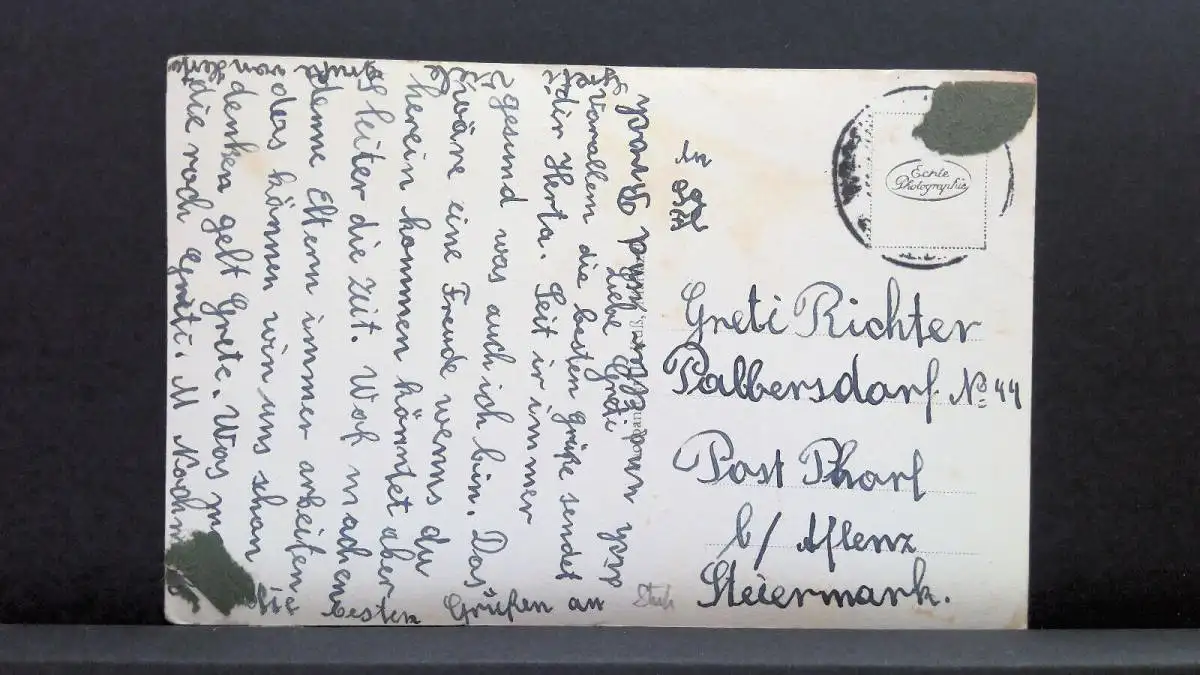 Liebe Greti
Vorallem die besten Grüße sendet
dir Herta. Seit ir immer
gesund was auch ich bin. Das
wäre eine Freude wenns du
herein kommen könntet aber
leiter die Zeit. Was machen
denne Eltern immer arbeiten
das können wir uns schan
denken gelt Grete. Was
die noch Greti. M
die besten Grüßen an
Gruß von Herta
Echte
Photographie
Greti Richter
Palbersdorf No 44
Post Thorl
b/ Aflenz
Steiermark.